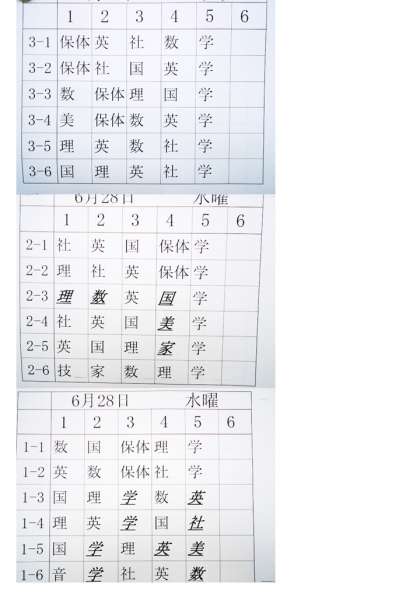 1 2 3 4 5 6
3-1 保体 英 社 数 学
3-2 保体 社 国 英 学
3-3 数 保体 理 国 学
3-4 美 保体 数 英 学
3-5 理 英 数 社 学
3-6 国 理 英 社 学
6月28日 水曜
1 2 3 4 5 6
2-1 社 英 国 保体 学
2-2 理 社 英 保体 学
2-3 理 数 英 国 学
2-4 社 英 国 美 学
2-5 英 国 理 家 学
2-6 技 家 数 理 学
6月28日 水曜
1 2 3 4 5 6
1-1 数 国 保体 理 学
1-2 英 数 保体 社 学
1-3 国 理 学 数 英
1-4 理 英 学 国 社
1-5 国 学 理 英 美
1-6 音 学 社 英 数